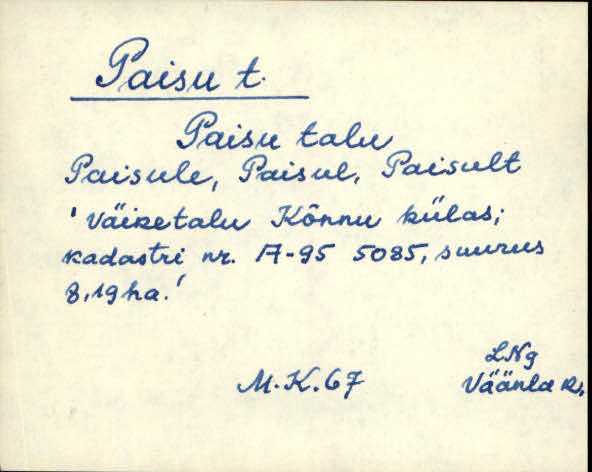 Paisu t.
Paisu talu
Paisule, Paisul, Paisult
'Väiketalu Kõnnu külas;
kadastri nr. A-95 5085, suurus
8,19 ha.'
M.K. 67
LNg
Väänla k.